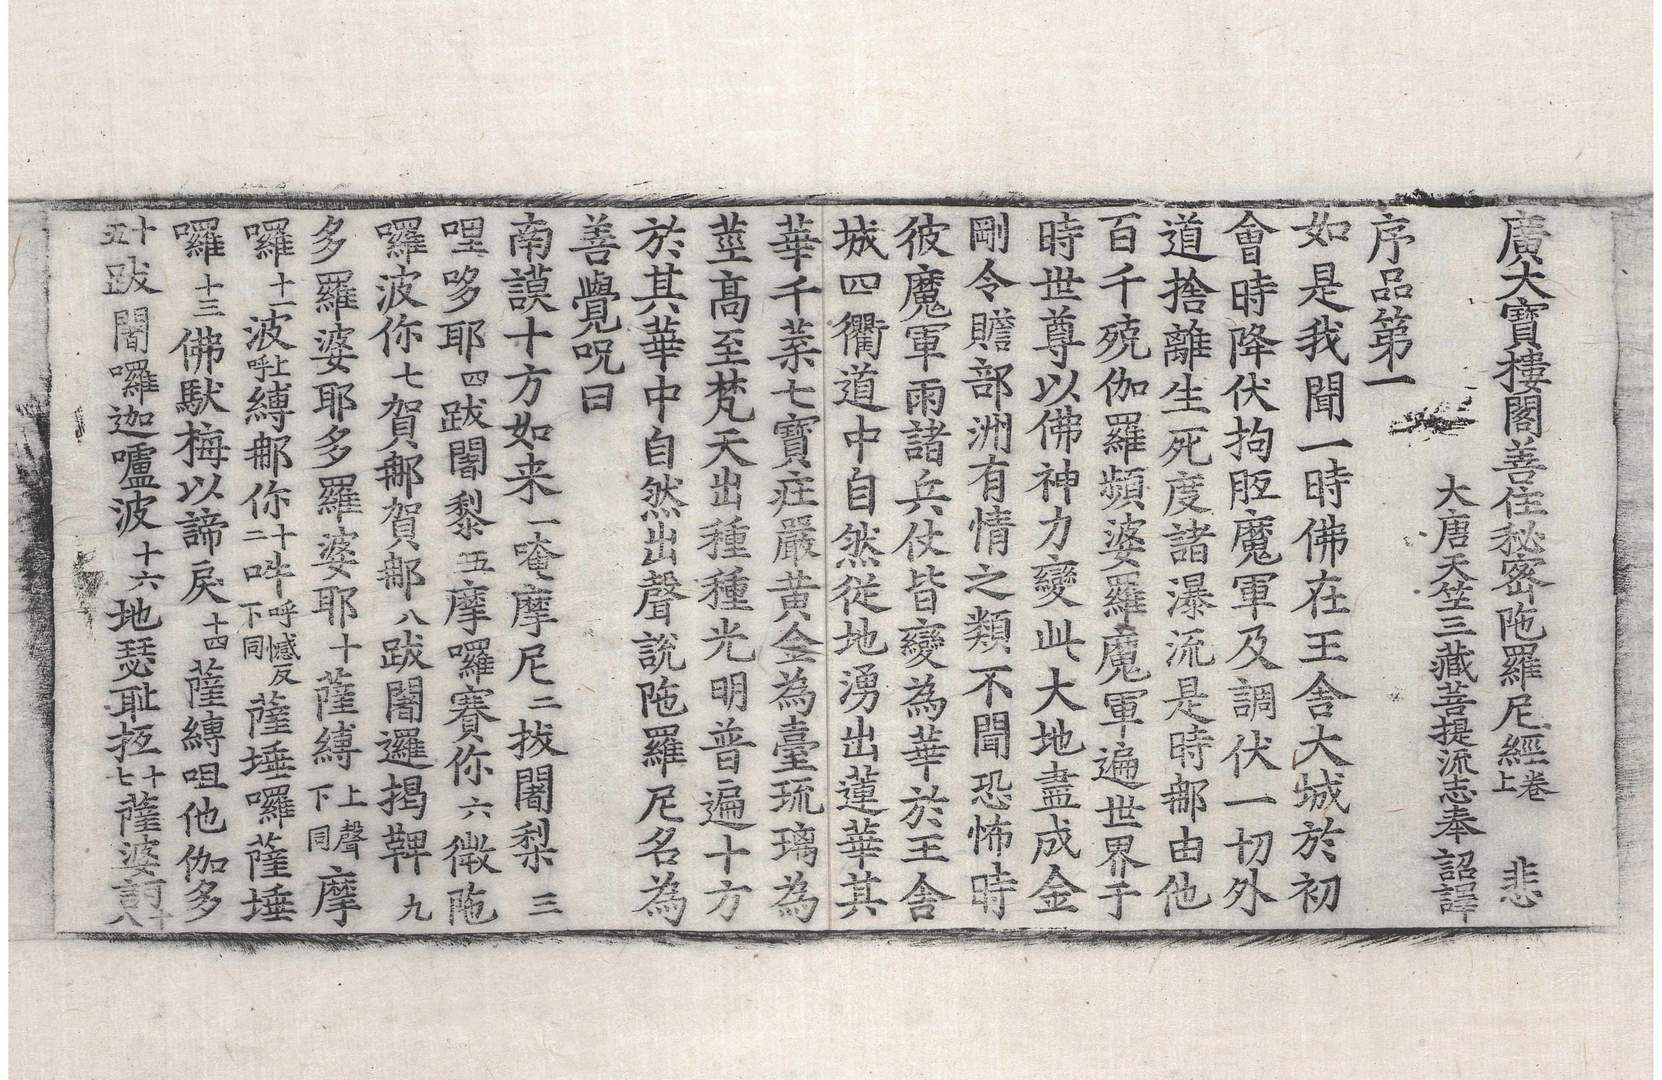 廣大寶樓閣善住秘密陁羅尼經卷上 悲
大唐天竺三藏菩提流志奉 詔譯
序品第一
如是我聞一時佛在王舍大城於初
會時降伏拘胝魔軍及調伏一切外
道捨離生死度諸瀑流是時那由他
百千殑伽羅頻婆羅魔軍遍世界于
時世尊以佛神力變此大地盡成金
剛令贍部洲有情之類不聞恐怖時
彼魔軍雨諸兵仗皆變為華於王舍
城四衢道中自然從地湧出蓮華其
華千葉七寶莊嚴黃金為臺琉璃為
莖高至梵天出種種光明普遍十方
於其華中自然出聲說陁羅尼名為
善覺呪曰
南謨十方如来一唵摩尼二拔闍梨三
哩哆耶四跋闍黎五摩囉賽你六微陁
囉波你七賀那賀那八跋闍邏揭鞞九
多羅婆耶多羅婆耶十薩縛上聲下同摩
囉十一波上呼縛那你十二吽呼憾反下同薩埵囉薩埵
囉十三佛馱梅以諦戾十四薩縛呾他伽多
十五跋闍囉迦嚧波十六地瑟耻抂十七薩婆訶十八